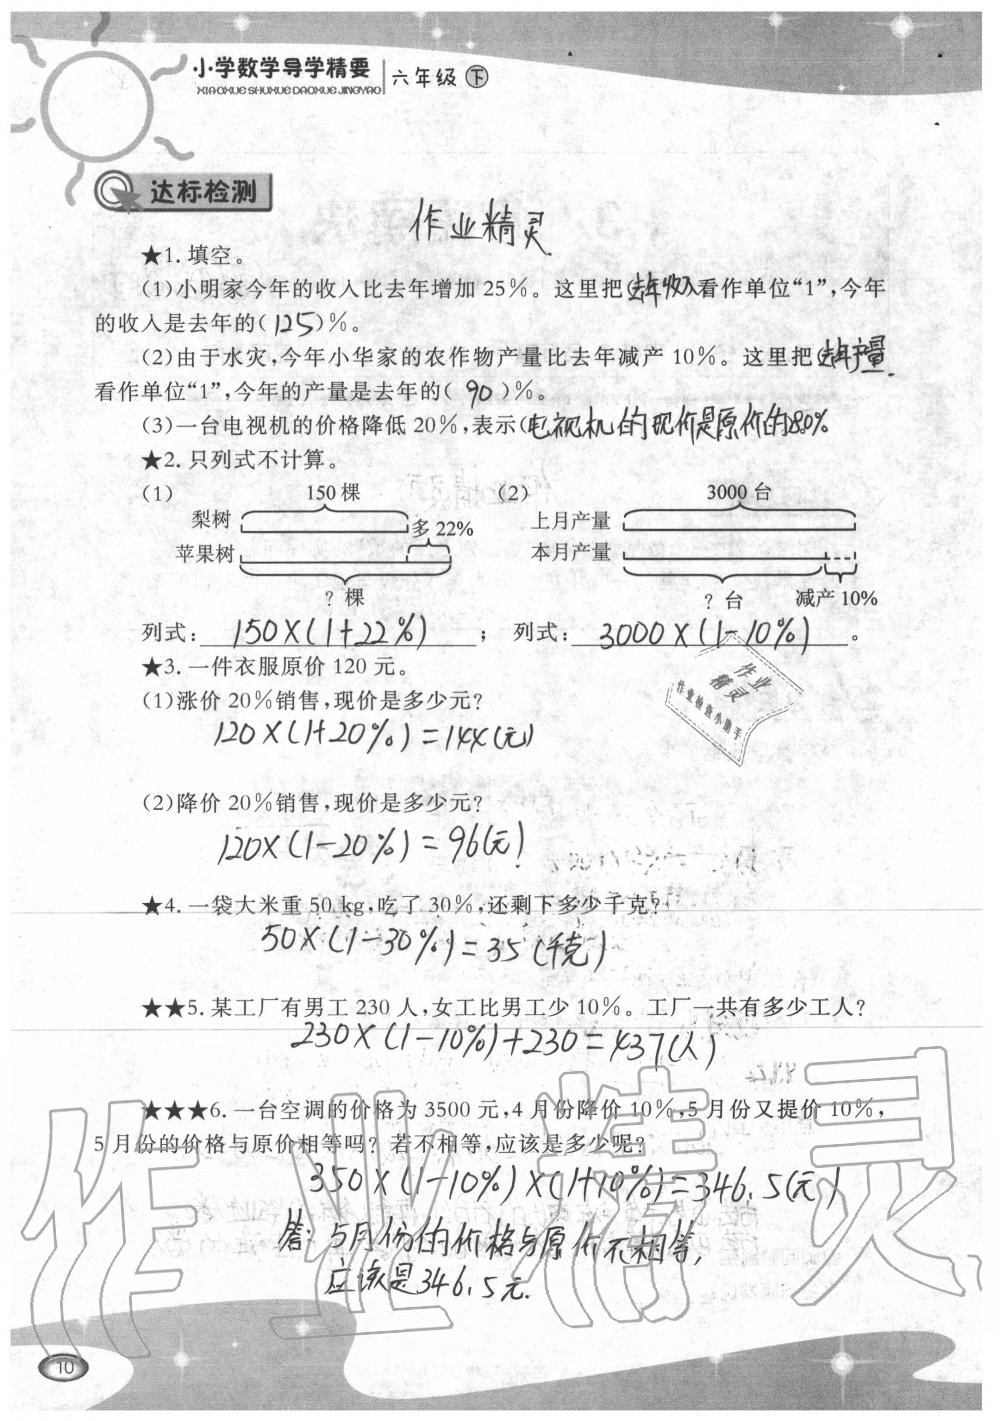 小学数学导学精要 六年级 下
XIAOXUE SHUXUE DAOXUE JINGYAO
达标检测
作业精灵
★1. 填空。
(1)小明家今年的收入比去年增加 25%。这里把(去年收入看作单位“1”,今年
的收入是去年的( 125 )%。
(2)由于水灾,今年小华家的农作物产量比去年减产 10%。这里把(去年产量
看作单位“1”,今年的产量是去年的( 90 )%。
(3)一台电视机的价格降低 20%,表示(电视机的现价是原价的80%
★2. 只列式不计算。
(1) 150 棵 (2) 3000 台
梨树 多 22% 上月产量
苹果树 本月产量
? 棵 ? 台 减产 10%
列式: 150×(1+22%) ; 列式: 3000×(1-10%) 。
★3. 一件衣服原价 120 元。
作业
精灵
作业检查小助手
(1)涨价 20%销售,现价是多少元?
120×(1+20%)=144(元)
(2)降价 20%销售,现价是多少元?
120×(1-20%)=96(元)
★4. 一袋大米重 50 kg,吃了 30%,还剩下多少千克?
50×(1-30%)=35(千克)
★★5. 某工厂有男工 230 人,女工比男工少 10%。工厂一共有多少工人?
230×(1-10%)+230=437(人)
★★★6. 一台空调的价格为 3500 元,4 月份降价 10%,5 月份又提价 10%,
5 月份的价格与原价相等吗? 若不相等,应该是多少呢?
350×(1-10%)×(1+10%)=346.5(元)
答:5月份的价格与原价不相等,
应该是346.5元.
作业精灵
10